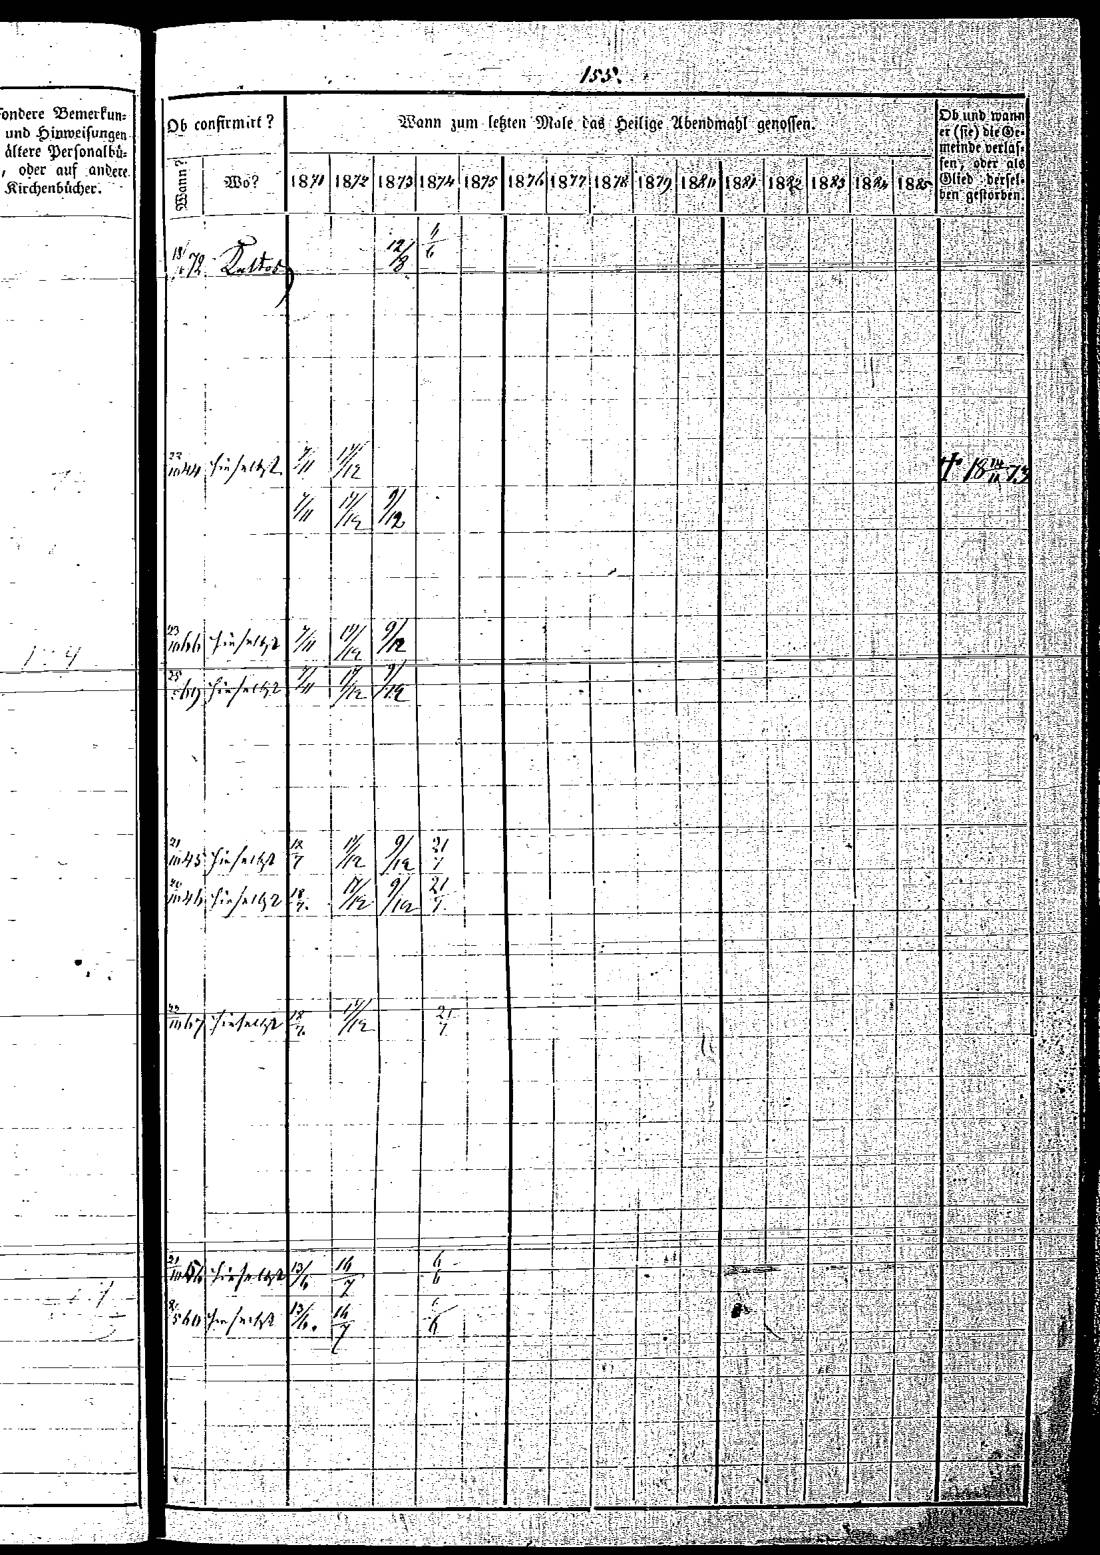 155.
sondere Bemerkun=
und Hinweisungen
ältere Personalbü=
, oder auf andere
Kirchenbücher.
Ob confirmirt?
Wann?
Wo?
Wann zum letzten Male das Heilige Abendmahl genossen.
1871 1872 1873 1874 1875 1876 1877 1878 1879 1880 1881 1882 1883 1884 1885
Ob und wann
er (sie) die Ge=
meinde verlas=
sen, oder als
Glied dersel=
ben gestorben.
72 12/8 6
23/10 44 hieselbst 7/11 17/12 † 18 14/11 73
7/11 17/12 9/12
23/10 66 hieselbst 7/11 17/12 9/12
25 69 hieselbst 7/11 17/12 9/12
21/10 45 hieselbst 18/7 17/12 9/12 21/7
20/10 46 hieselbst 18/7 17/12 9/12 21/7
22/10 67 hieselbst 18/7 17/12 21/7
21/10 56 hieselbst 13/6 16/7 6/6
60 hieselbst 13/6 16/7 6